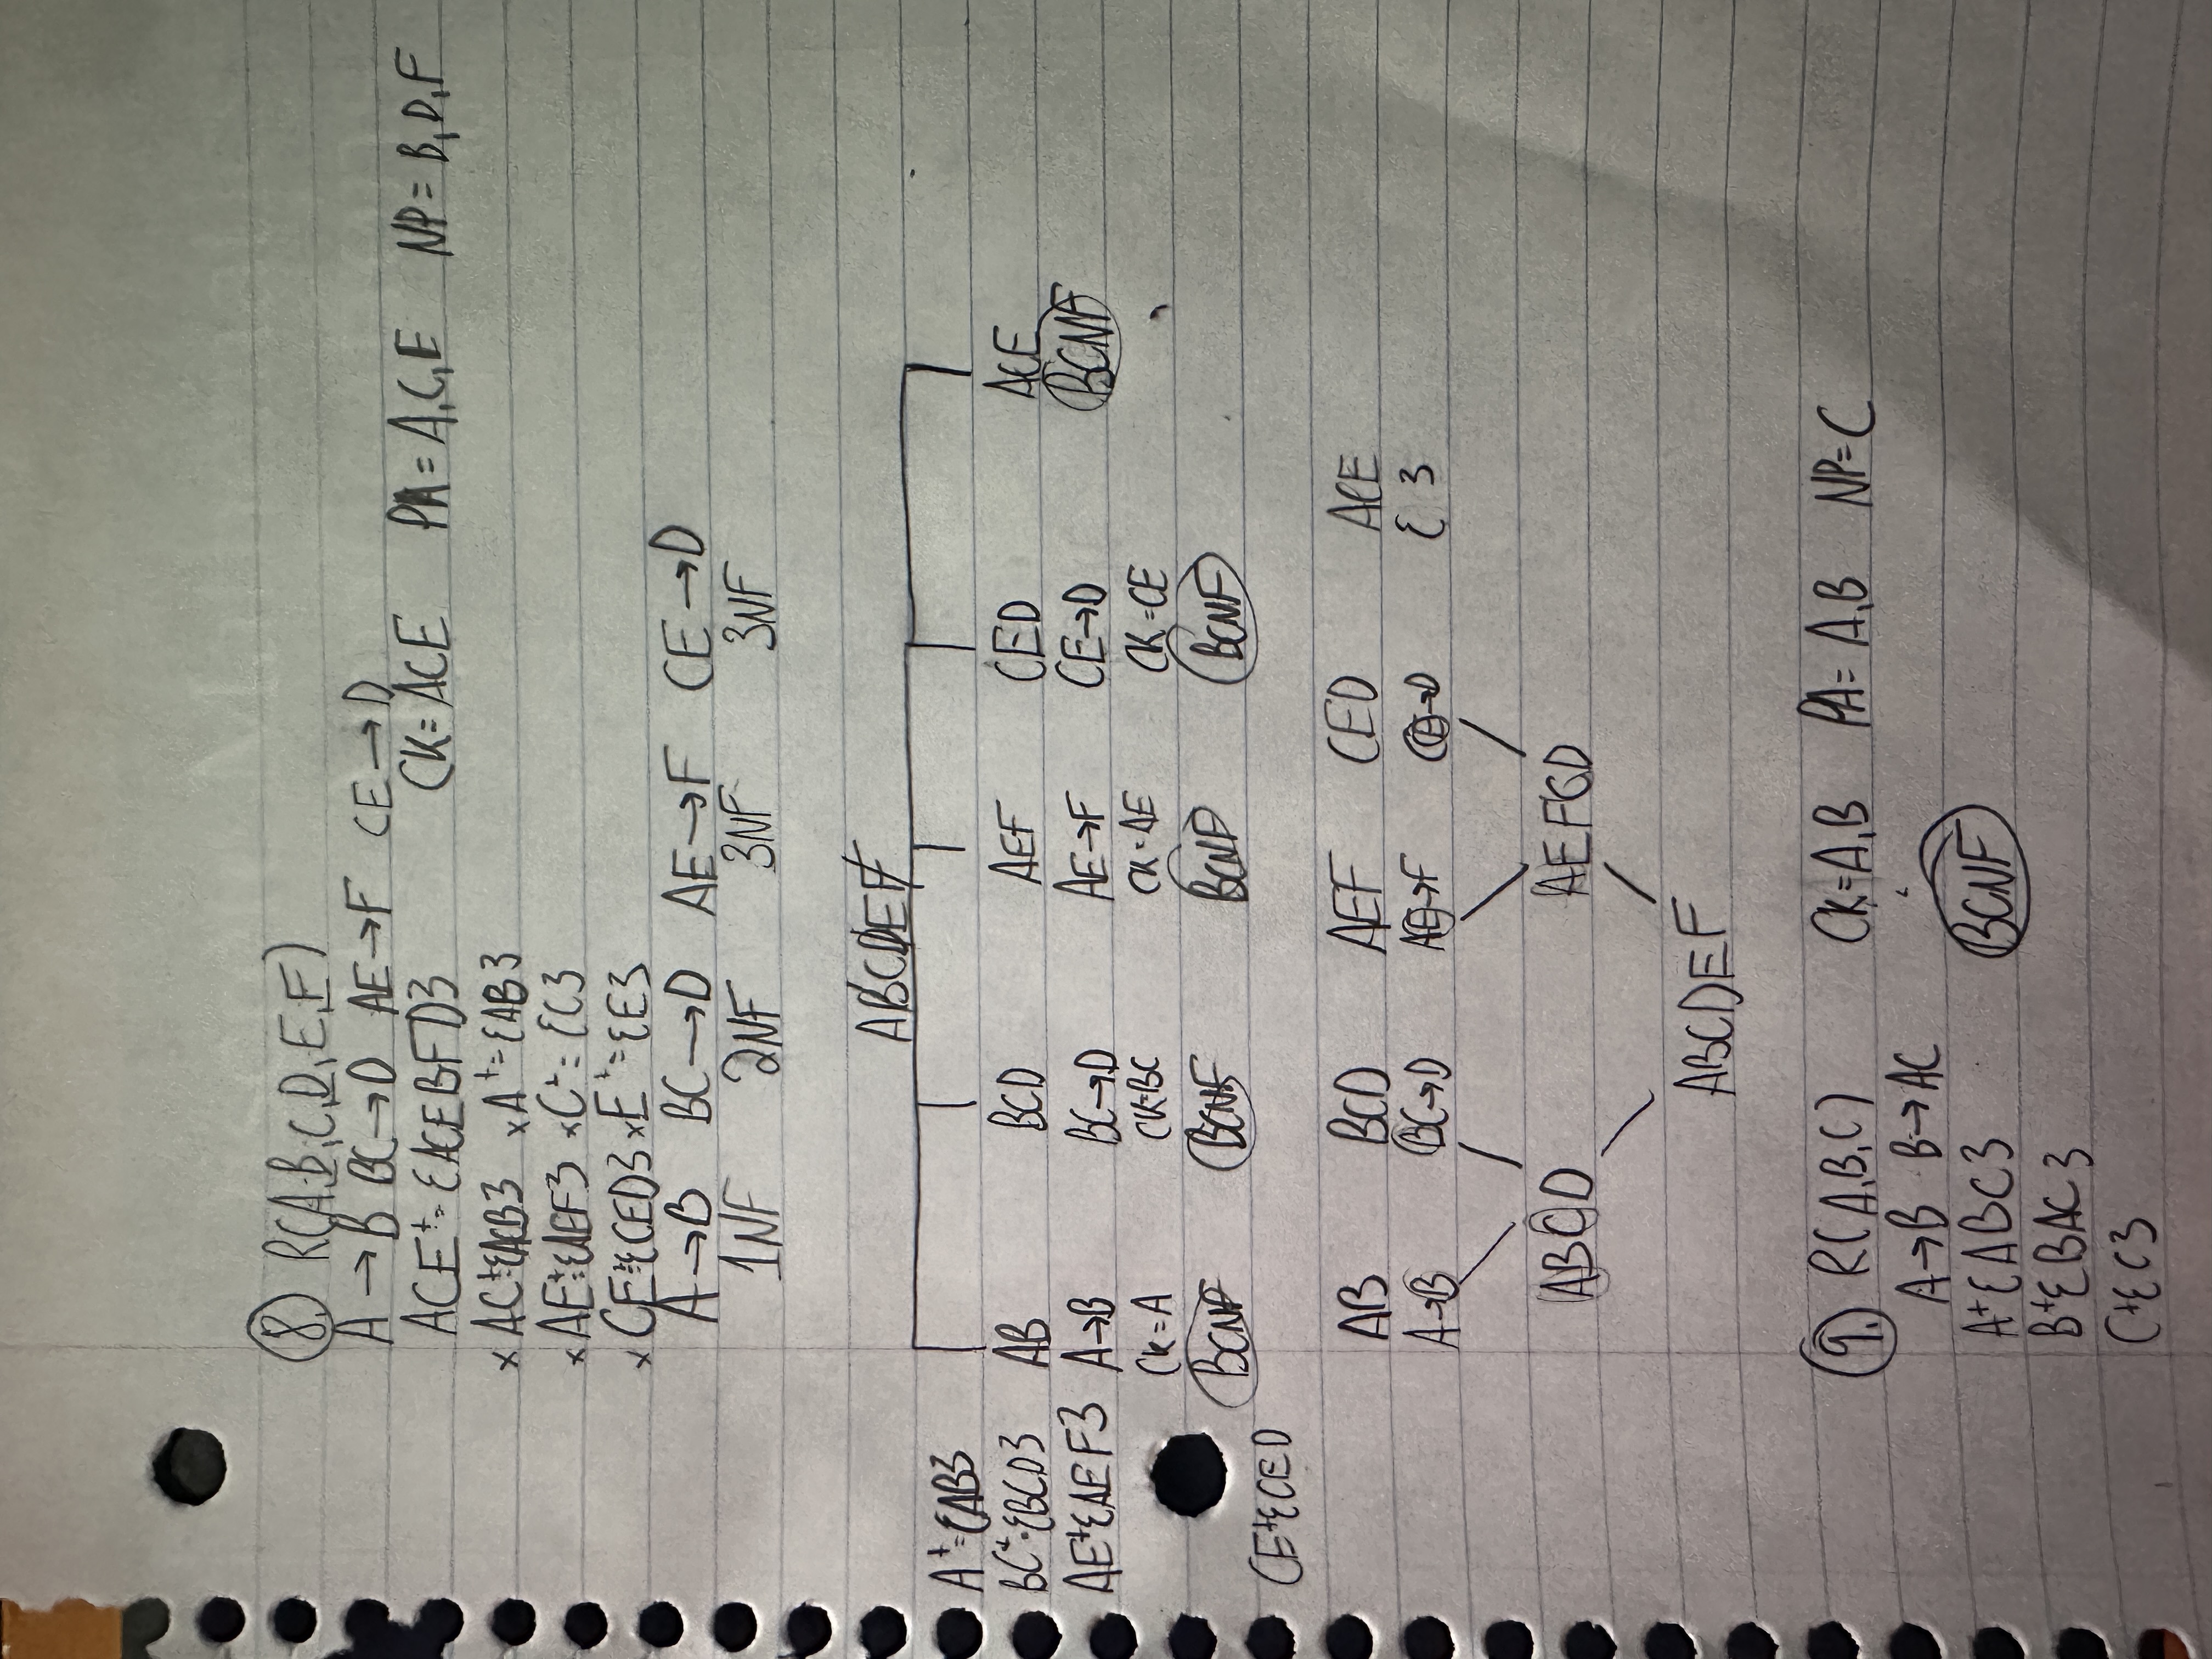 8. R(A,B,C,D,E,F)
A → B BC → D AE → F CE → D
ACE+= {ACEBFD} CK= ACE PA = A,C,E NP = B,D,F
x AC+={ACB} x A+= {AB}
x AE+={AEF} x C+= {C}
x CE+={CED} x E+= {E}
A → B BC → D AE → F CE → D
1NF 2NF 3NF 3NF
ABCDEF
A+={AB}
BC+={BCD} AB BCD AEF CED ACE
AE+{AEF} A→B BC→D AE→F CE→D BCNF
CK=A CK=BC CK=AE CK=CE
BCNF BCNF BCNF BCNF
CE+{CED
AB BCD AEF CED ACE
A→B BC→D AE→F CE→D { }
ABCD AEFCD
ABCDEF
9. R(A,B,C) CK=A,B PA= A,B NP=C
A→B B→AC
A+{ABC} BCNF
B+{BAC}
C+{C}